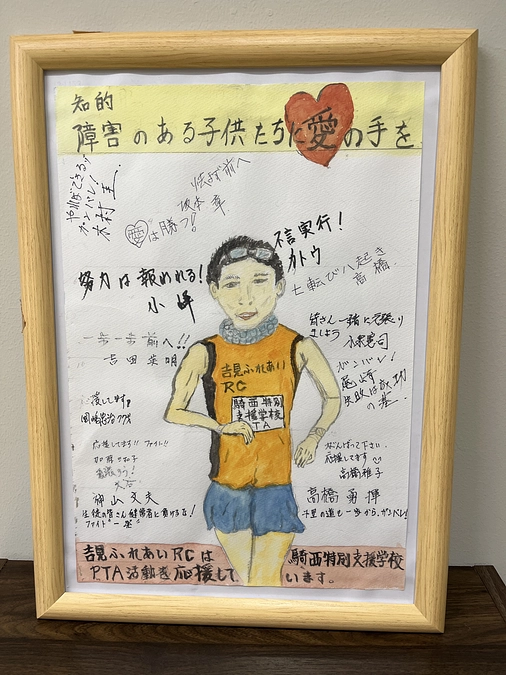 知的
障害のある子供たちに愛の手を
やればできるサ
ガンバレ!
木村 圭
怯まず前へ
坂本 章
愛は勝つ!
不言実行!
カトウ
七転び八起き
高橋
努力は報われる!
小峰
一歩一歩前へ!!
吉田英明
皆さん一緒に頑張り
ましよう
ガンバレ!
尾崎
失敗は成功
の基
応援してます!! ファイト!!
頑張ろう!
大谷
神山文夫
生徒の皆さん健常者に負けるな!
ファイト一発
がんばって下さい。
応援してます
高橋雅子
高橋勇揮
千里の道も一歩から、がンバレ!
吉見ふれあい
RC
騎西特別
支援学校
PTA
吉見ふれあいRCは 騎西特別支援学校
PTA活動を応援して います。